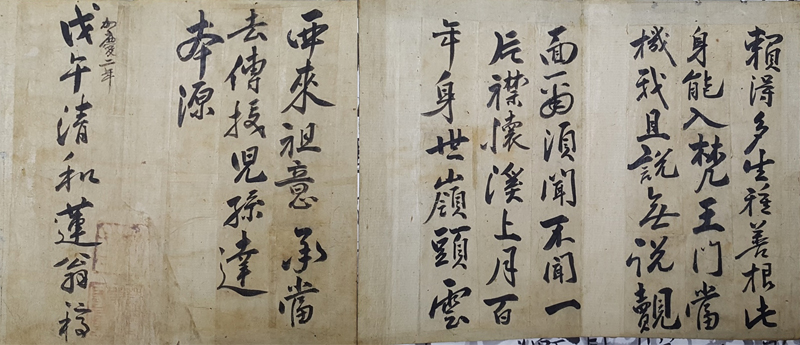 賴得多生種善根此
身能入梵王門當
機我且說無說覿
面爾須聞不聞一
片襟懷溪上月百
年身世嶺頭雲
西來祖意承當
去傳授兒孫達
本源
慶二年
戊午清和蓮翁稿